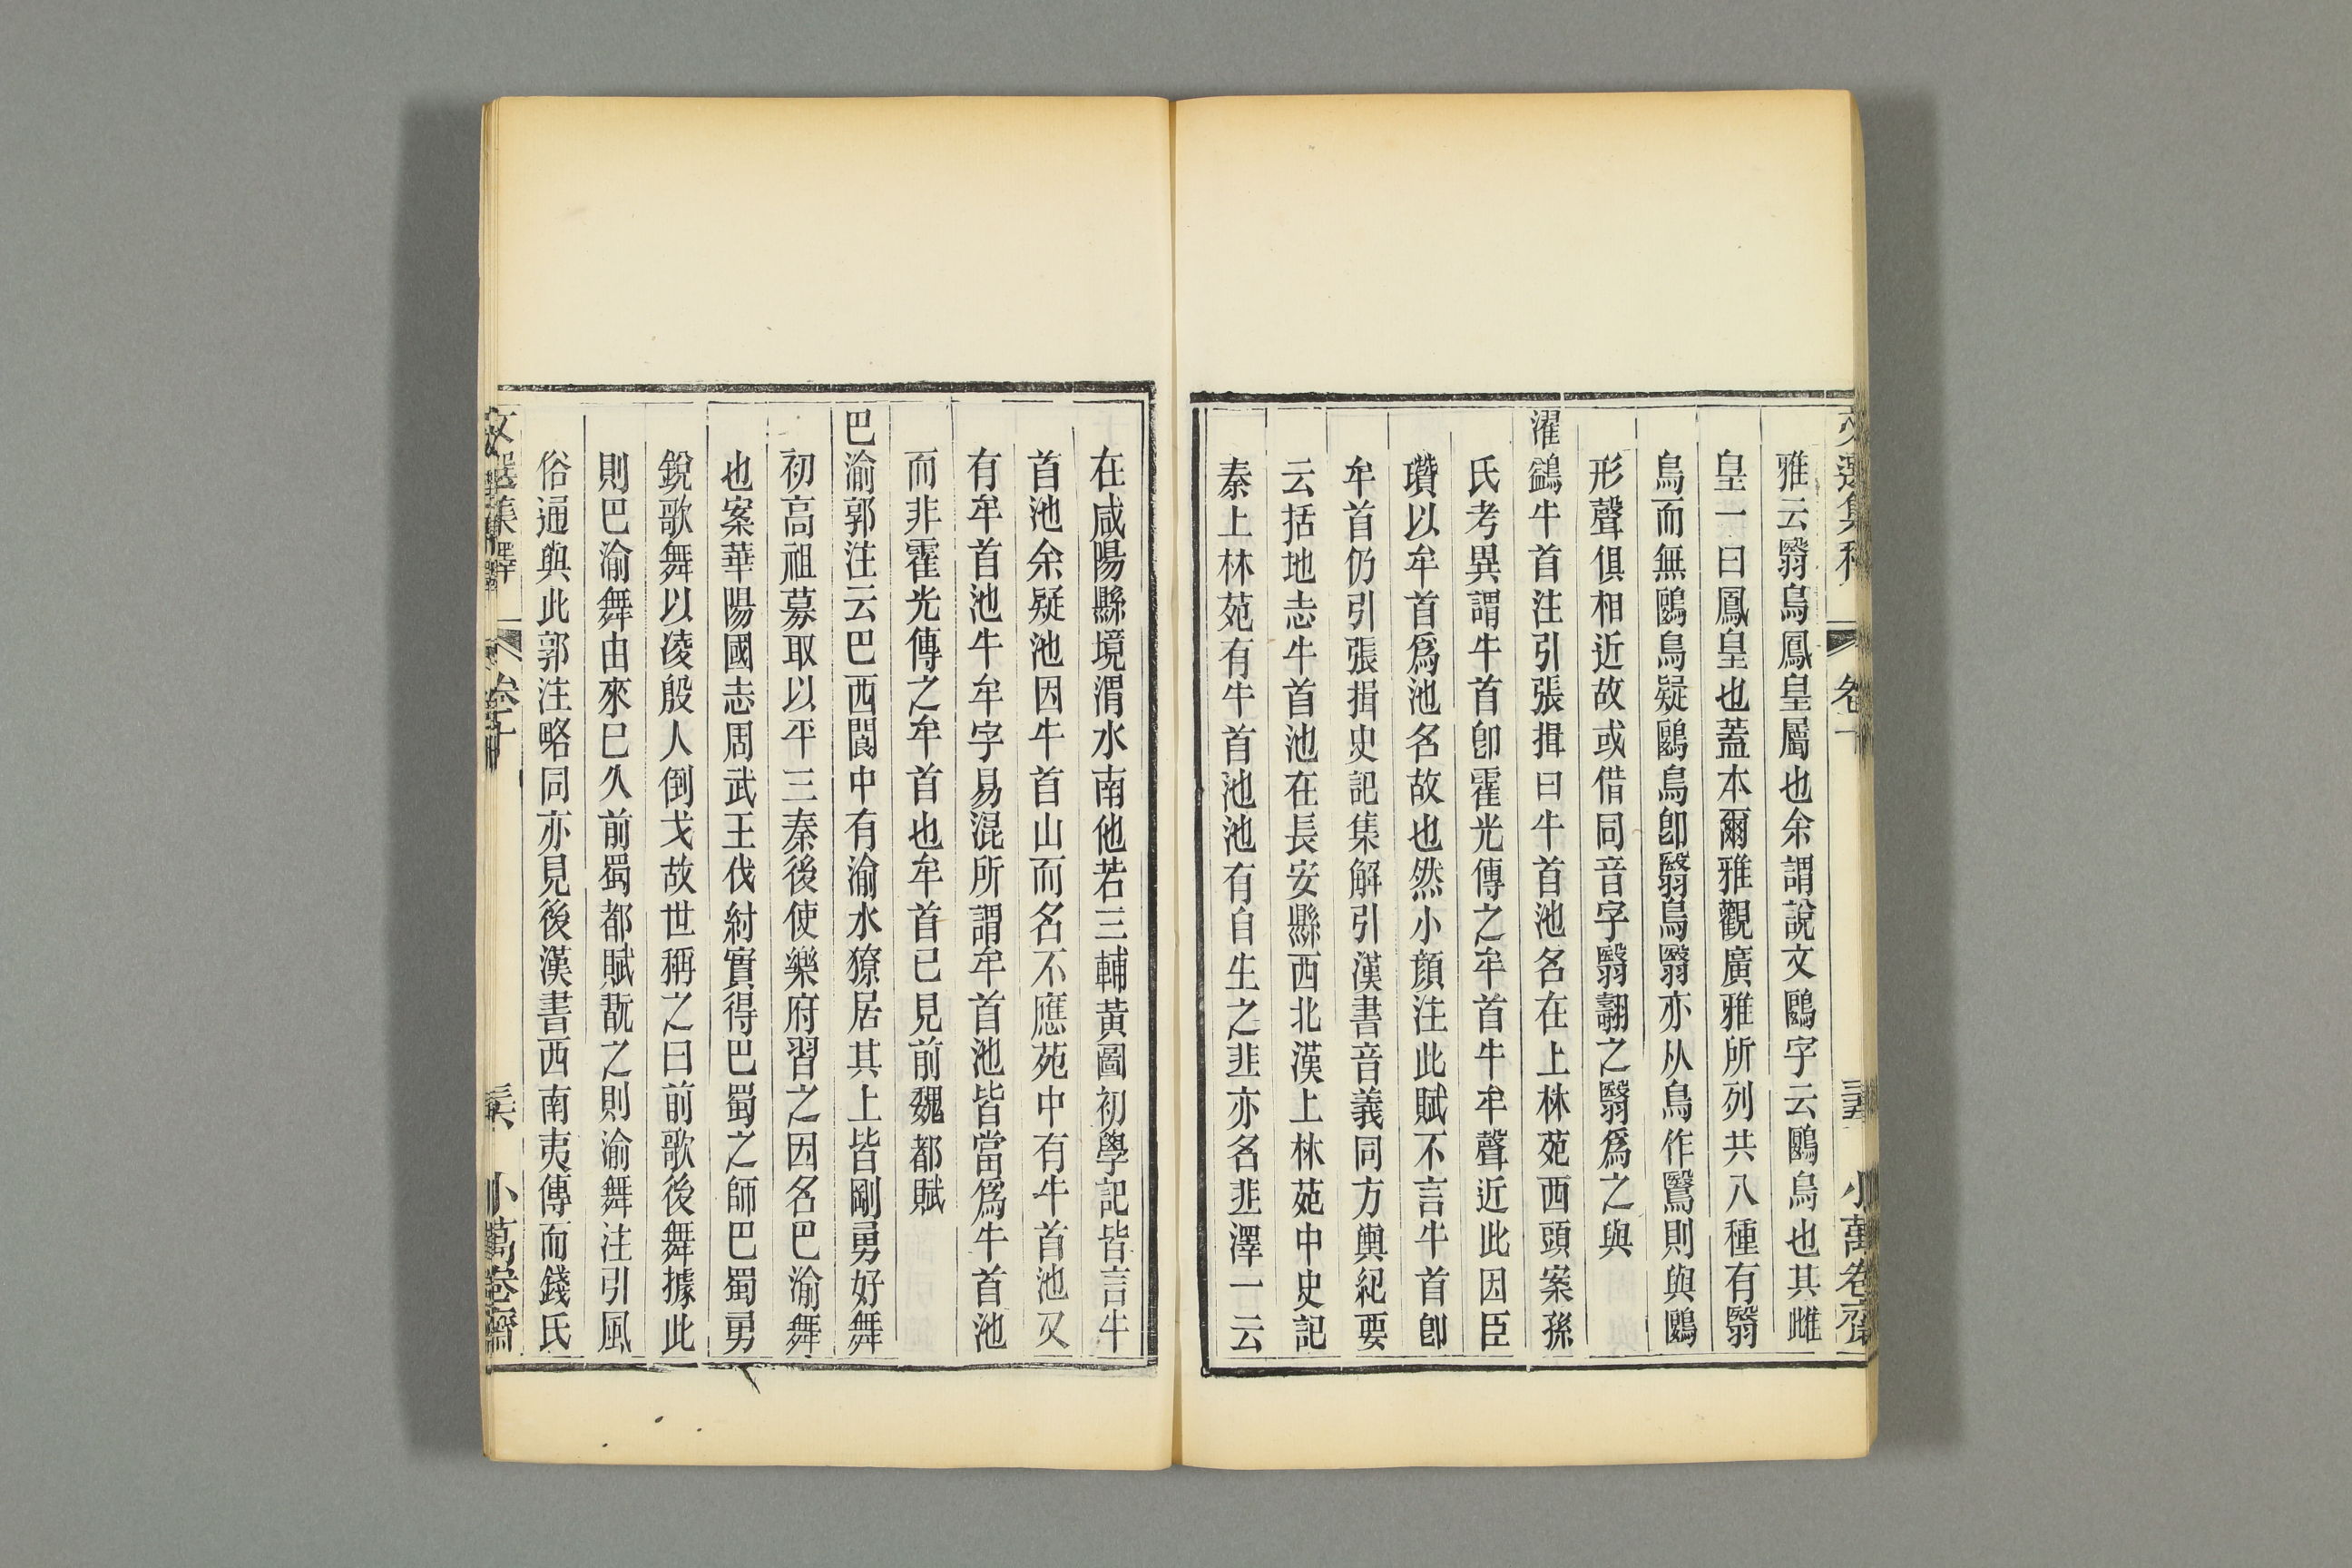 雅云翳鳥鳳皇屬也余謂說文鷗字云鷗鳥也其雌
皇一曰鳳皇也蓋本爾雅觀廣雅所列共八種有翳
鳥而無鶠鳥疑鶠鳥卽翳鳥翳亦从鳥作鷖則與鶠
形聲俱相近故或借同音字翳翿之翳爲之與
濯鷁牛首注引張揖曰牛首池名在上林苑西頭案孫
氏考異謂牛首卽霍光傳之牟首牛牟聲近此因臣
瓚以牟首爲池名故也然小顏注此賦不言牛首卽
牟首仍引張揖史記集解引漢書音義同方輿紀要
云括地志牛首池在長安縣西北漢上林苑中史記
秦上林苑有牛首池池有自生之韭亦名韭澤一云
在咸陽縣境渭水南他若三輔黃圖初學記皆言牛
首池余疑池因牛首山而名不應苑中有牛首池又
有牟首池牛牟字易混所謂牟首池皆當爲牛首池
而非霍光傳之牟首也牟首已見前魏都賦
巴渝郭注云巴西閬中有渝水獠居其上皆剛勇好舞
初高祖募取以平三秦後使樂府習之因名巴渝舞
也案華陽國志周武王伐紂實得巴蜀之師巴蜀勇
銳歌舞以凌殷人倒戈故世稱之曰前歌後舞據此
則巴渝舞由來已久前蜀都賦翫之則渝舞注引風
俗通與此郭注略同亦見後漢書西南夷傳而錢氏
文選集釋 小萬卷齋